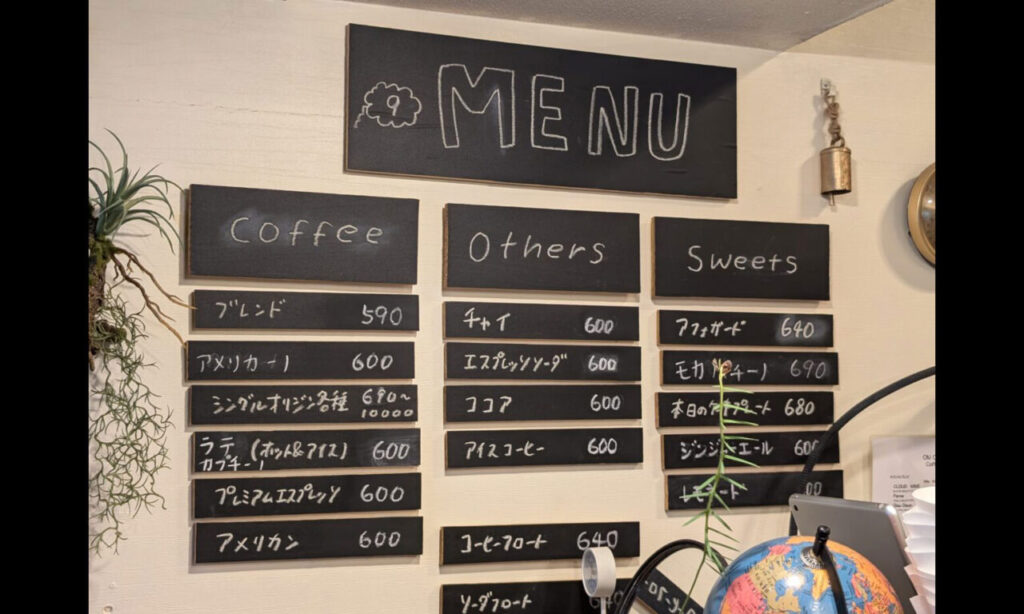 9 MENU
Coffee
ブレンド 590
アメリカーノ 600
シングルオリジン各種 690〜
10000
ラテ (ホット&アイス) 600
カプチーノ
プレミアムエスプレッソ 600
アメリカン 600
Others
チャイ 600
エスプレッソソーダ 600
ココア 600
アイスコーヒー 600
コーヒーフロート 640
ソーダフロート
Sweets
アフォガード 640
モカ チーノ 690
本日の プレート 680
ジンジャーエール 600
レモネード 00